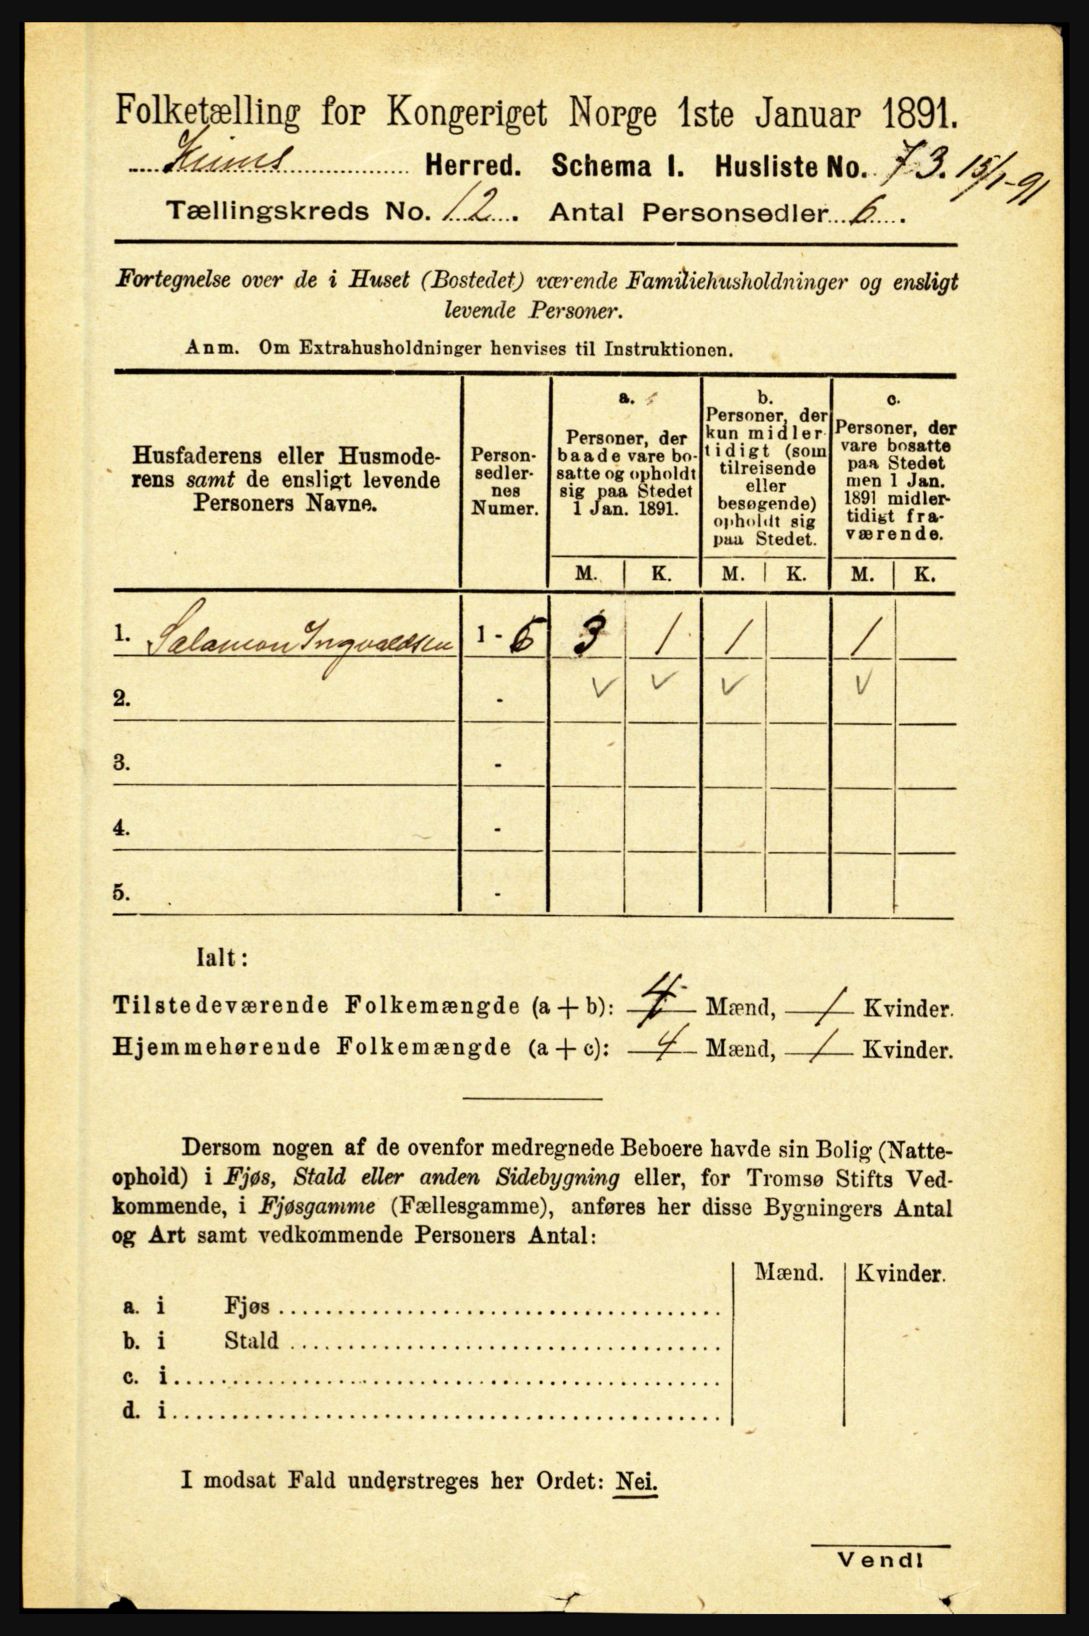 Folketælling for Kongeriget Norge 1ste Januar 1891.
Kinns Herred. Schema I. Husliste No. 73. 15/1-91
Tællingskreds No. 12. Antal Personsedler 6.
Fortegnelse over de i Huset (Bostedet) værende Familiehusholdninger og ensligt
levende Personer.
Anm. Om Extrahusholdninger henvises til Instruktionen.
Husfaderens eller Husmode-
rens samt de ensligt levende
Personers Navne.
Person-
sedler-
nes
Numer.
a.
Personer, der
baade vare bo-
satte og opholdt
sig paa Stedet
1 Jan. 1891.
b.
Personer, der
kun midler-
tidigt (som
tilreisende
eller
besøgende)
opholdt sig
paa Stedet.
c.
Personer, der
vare bosatte
paa Stedet
men 1 Jan.
1891 midler-
tidigt fra-
værende.
M. K. M. K. M. K.
1. Salamon Ingvaldsen 1 - 6 3 1 1 1
2. - v v v v
3. -
4. -
5. -
Ialt:
Tilstedeværende Folkemængde (a + b): 4 Mænd, 1 Kvinder.
Hjemmehørende Folkemængde (a + c): 4 Mænd, 1 Kvinder.
Dersom nogen af de ovenfor medregnede Beboere havde sin Bolig (Natte-
ophold) i Fjøs, Stald eller anden Sidebygning eller, for Tromsø Stifts Ved-
kommende, i Fjøsgamme (Fællesgamme), anføres her disse Bygningers Antal
og Art samt vedkommende Personers Antal:
Mænd. Kvinder.
a. i Fjøs
b. i Stald
c. i
d. i
I modsat Fald understreges her Ordet: Nei.
Vend!